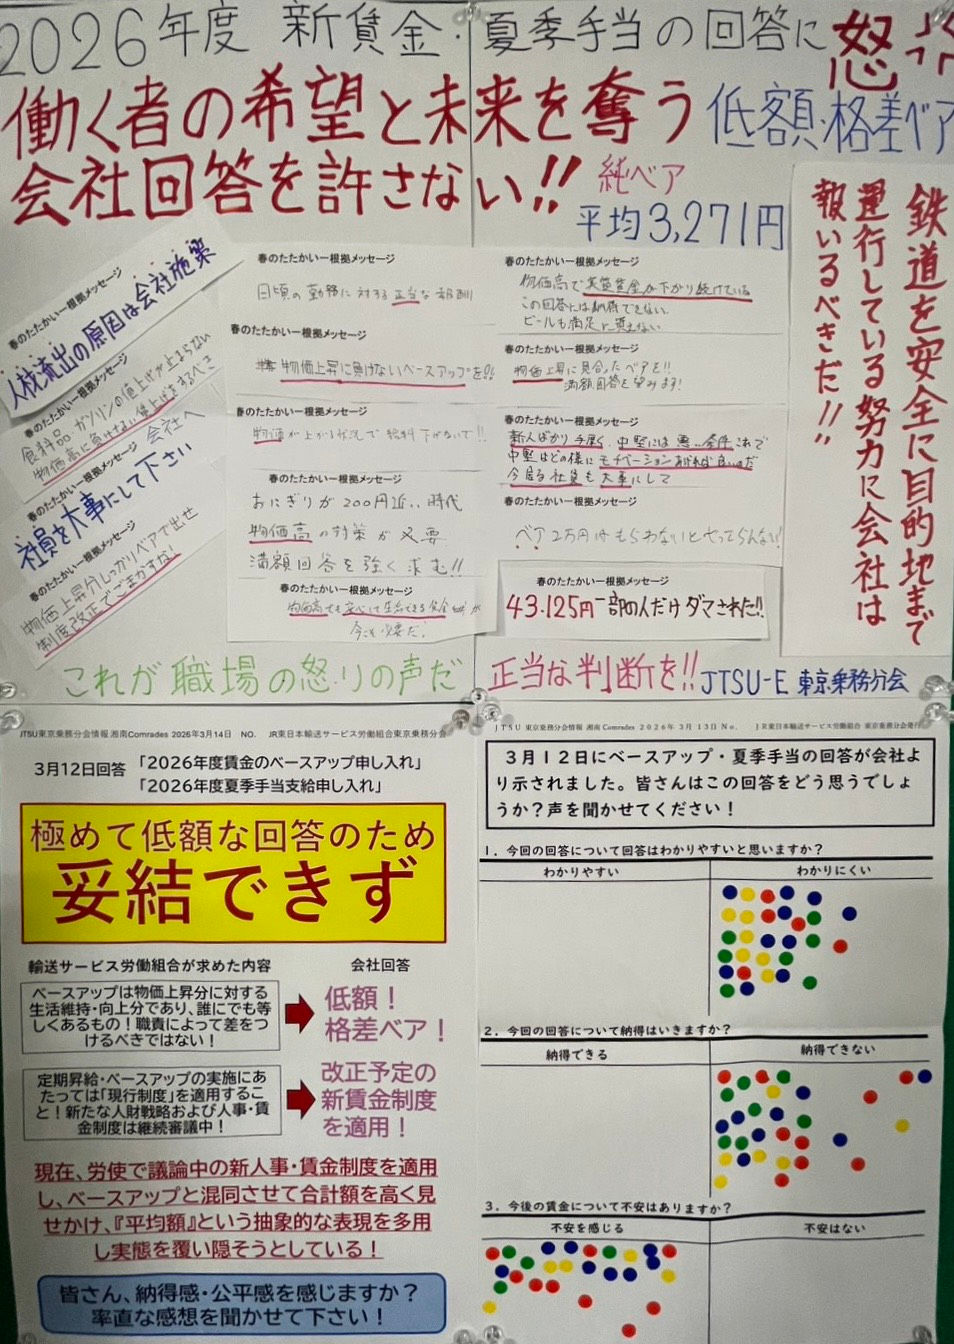 2026年度 新賃金・夏季手当の回答に怒
働く者の希望と未来を奪う
低額・格差ベア
会社回答を許さない!!
純ベア
平均3,271円
鉄道を安全に目的地まで
運行している努力に会社は
報いるべきだ!!
春のたたかい一根拠メッセージ
人材流出の原因は会社施策
春のたたかい一根拠メッセージ
食料品 ガソリンの値上げが止まらない
物価高に負けない賃上げをするべき
春のたたかい一根拠メッセージ
会社へ
社員を大事にして下さい
春のたたかい一根拠メッセージ
物価上昇分しっかりベアで出せ
制度改正でごまかすな!
春のたたかい一根拠メッセージ
日頃の勤務に対する正当な報酬
春のたたかい一根拠メッセージ
物価上昇に負けないベースアップを!!
春のたたかい一根拠メッセージ
物価が上がる状況で給料下げないで!!
春のたたかい一根拠メッセージ
おにぎりが200円近い時代
物価高の対策が必要
満額回答を強く求む!!
春のたたかい一根拠メッセージ
物価高でも安心して生活できる賃金
今こそ必要だ!
春のたたかい一根拠メッセージ
物価高で実質賃金が下がり続けている
この回答には納得できない
ビールも満足に買えない
春のたたかい一根拠メッセージ
物価上昇に見合ったベアを!!
満額回答を望みます!
春のたたかい一根拠メッセージ
新人ばかり手厚く、中堅には悪い条件これで
中堅はどの様にモチベーションあげれば良いのだ
今居る社員も大事にして
春のたたかい一根拠メッセージ
ベア2万円はもらわないとやってらんない!
春のたたかい一根拠メッセージ
43.125円一部の人だけダマされた!!
これが職場の怒りの声だ
正当な判断を!! JTSU-E 東京乗務分会
JTSU東京乗務分会情報 湘南Comrades 2026年3月14日 NO. JR東日本輸送サービス労働組合東京乗務分会
3月12日回答 「2026年度賃金のベースアップ申し入れ」
「2026年度夏季手当支給申し入れ」
極めて低額な回答のため
妥結できず
輸送サービス労働組合が求めた内容
会社回答
ベースアップは物価上昇分に対する
生活維持・向上分であり、誰にでも等
しくあるもの！職責によって差をつ
けるべきではない！
低額！
格差ベア！
定期昇給・ベースアップの実施にあ
たっては「現行制度」を適用するこ
と！新たな人財戦略および人事・賃
金制度は継続審議中！
改正予定の
新賃金制度
を適用！
現在、労使で議論中の新人事・賃金制度を適用
し、ベースアップと混同させて合計額を高く見
せかけ、『平均額』という抽象的な表現を多用
し実態を覆い隠そうとしている！
皆さん、納得感・公平感を感じますか？
率直な感想を聞かせて下さい！
JTSU 東京乗務分会情報 湘南Comrades 2026年3月13日No. JR東日本輸送サービス労働組合 東京乗務分会発行
3月12日にベースアップ・夏季手当の回答が会社よ
り示されました。皆さんはこの回答をどう思うでしょ
うか？声を聞かせてください！
1．今回の回答について回答はわかりやすいと思いますか？
わかりやすい
わかりにくい
2．今回の回答について納得はいきますか？
納得できる
納得できない
3．今後の賃金について不安はありますか？
不安を感じる
不安はない